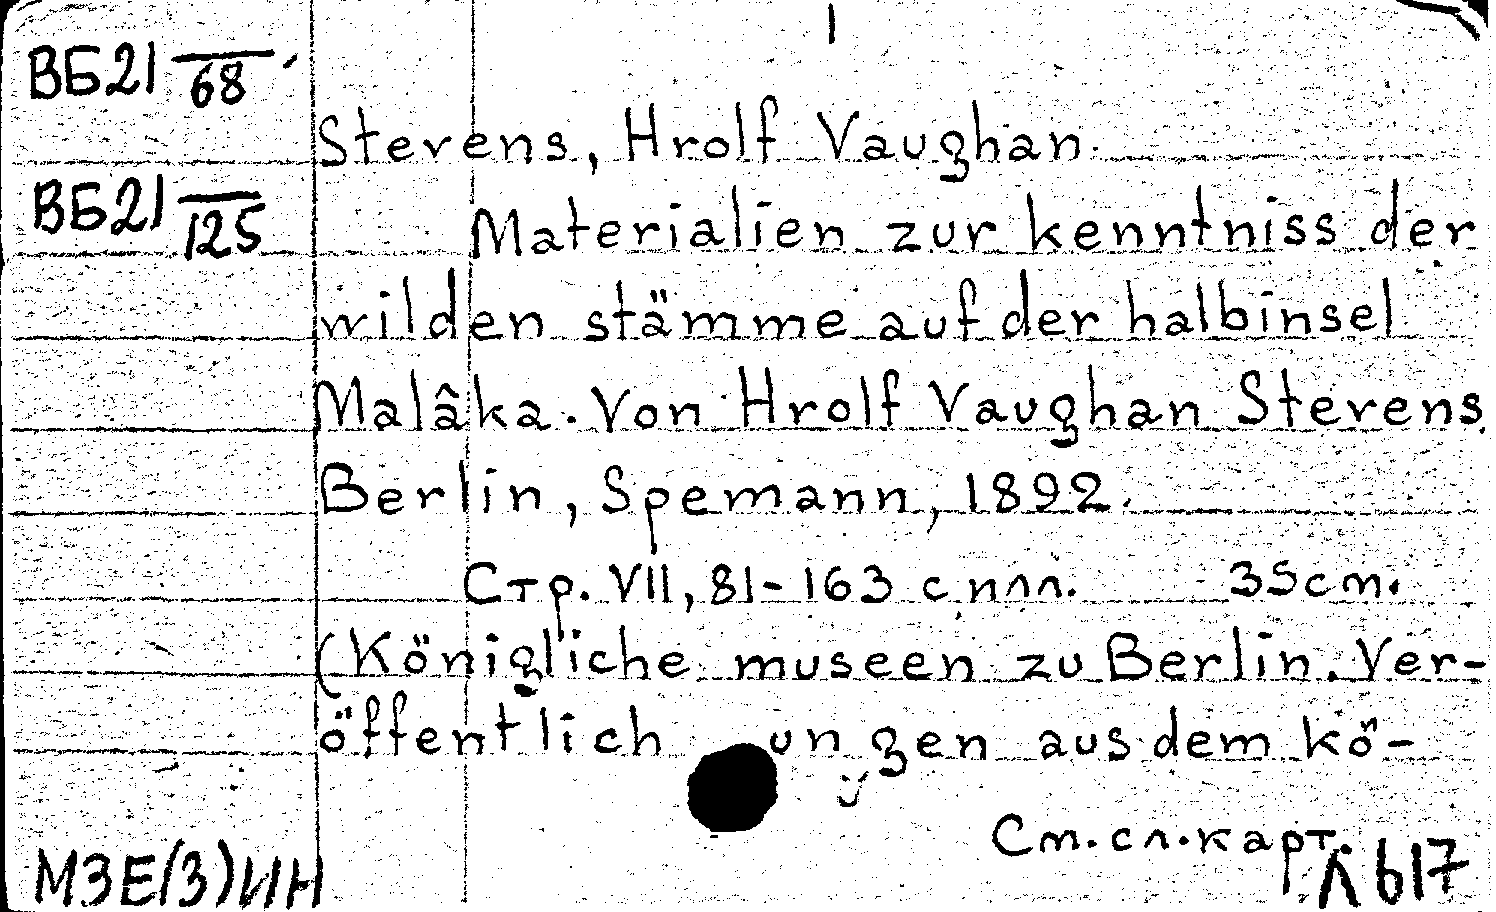 I
ВБ21 68
Stevens, Hrolf Vaughan.
ВБ21 125
Materialien zur kenntniss der
wilden stämme auf der halbinsel
Malâka. Von Hrolf Vaughan Stevens.
Berlin, Spemann, 1892.
Стр. VII, 81-163 с илл. 35см.
(Königliche museen zu Berlin. Ver-
öffentlich ungen aus dem kö-
См. сл. карт.
МЗЕ(3)ИН
Л 617